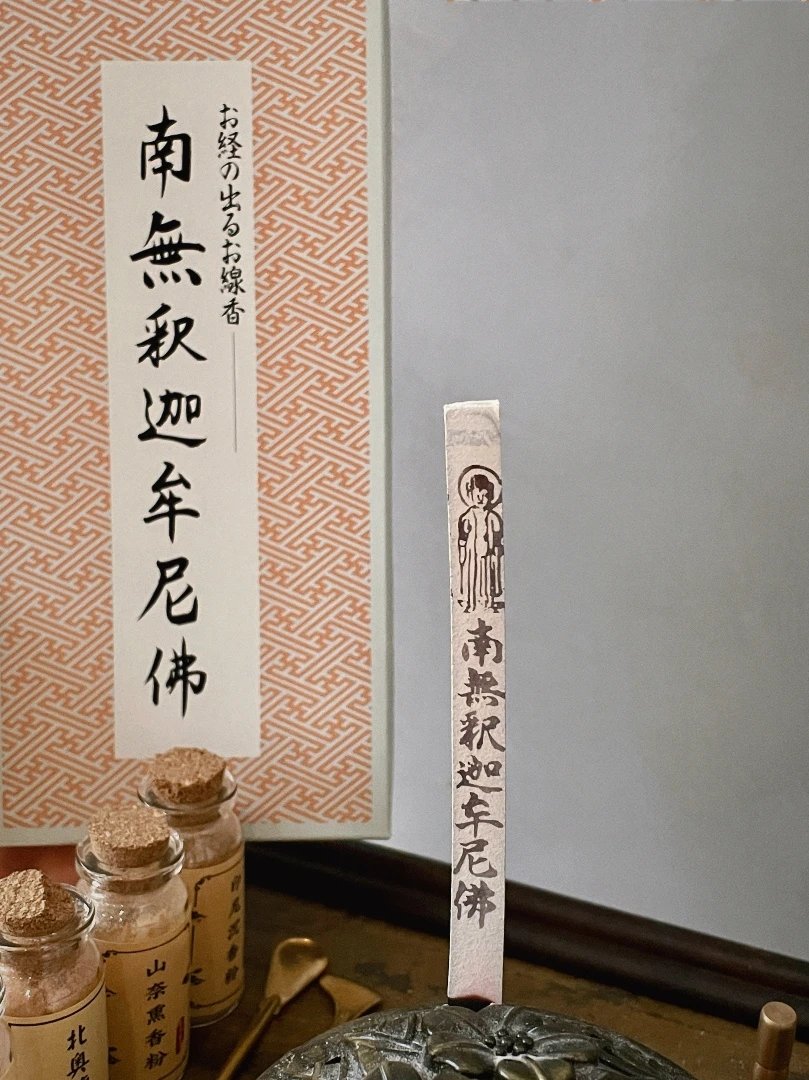 お経の出るお線香
南無釈迦牟尼佛
南無釈迦牟尼佛
山奈熏香粉